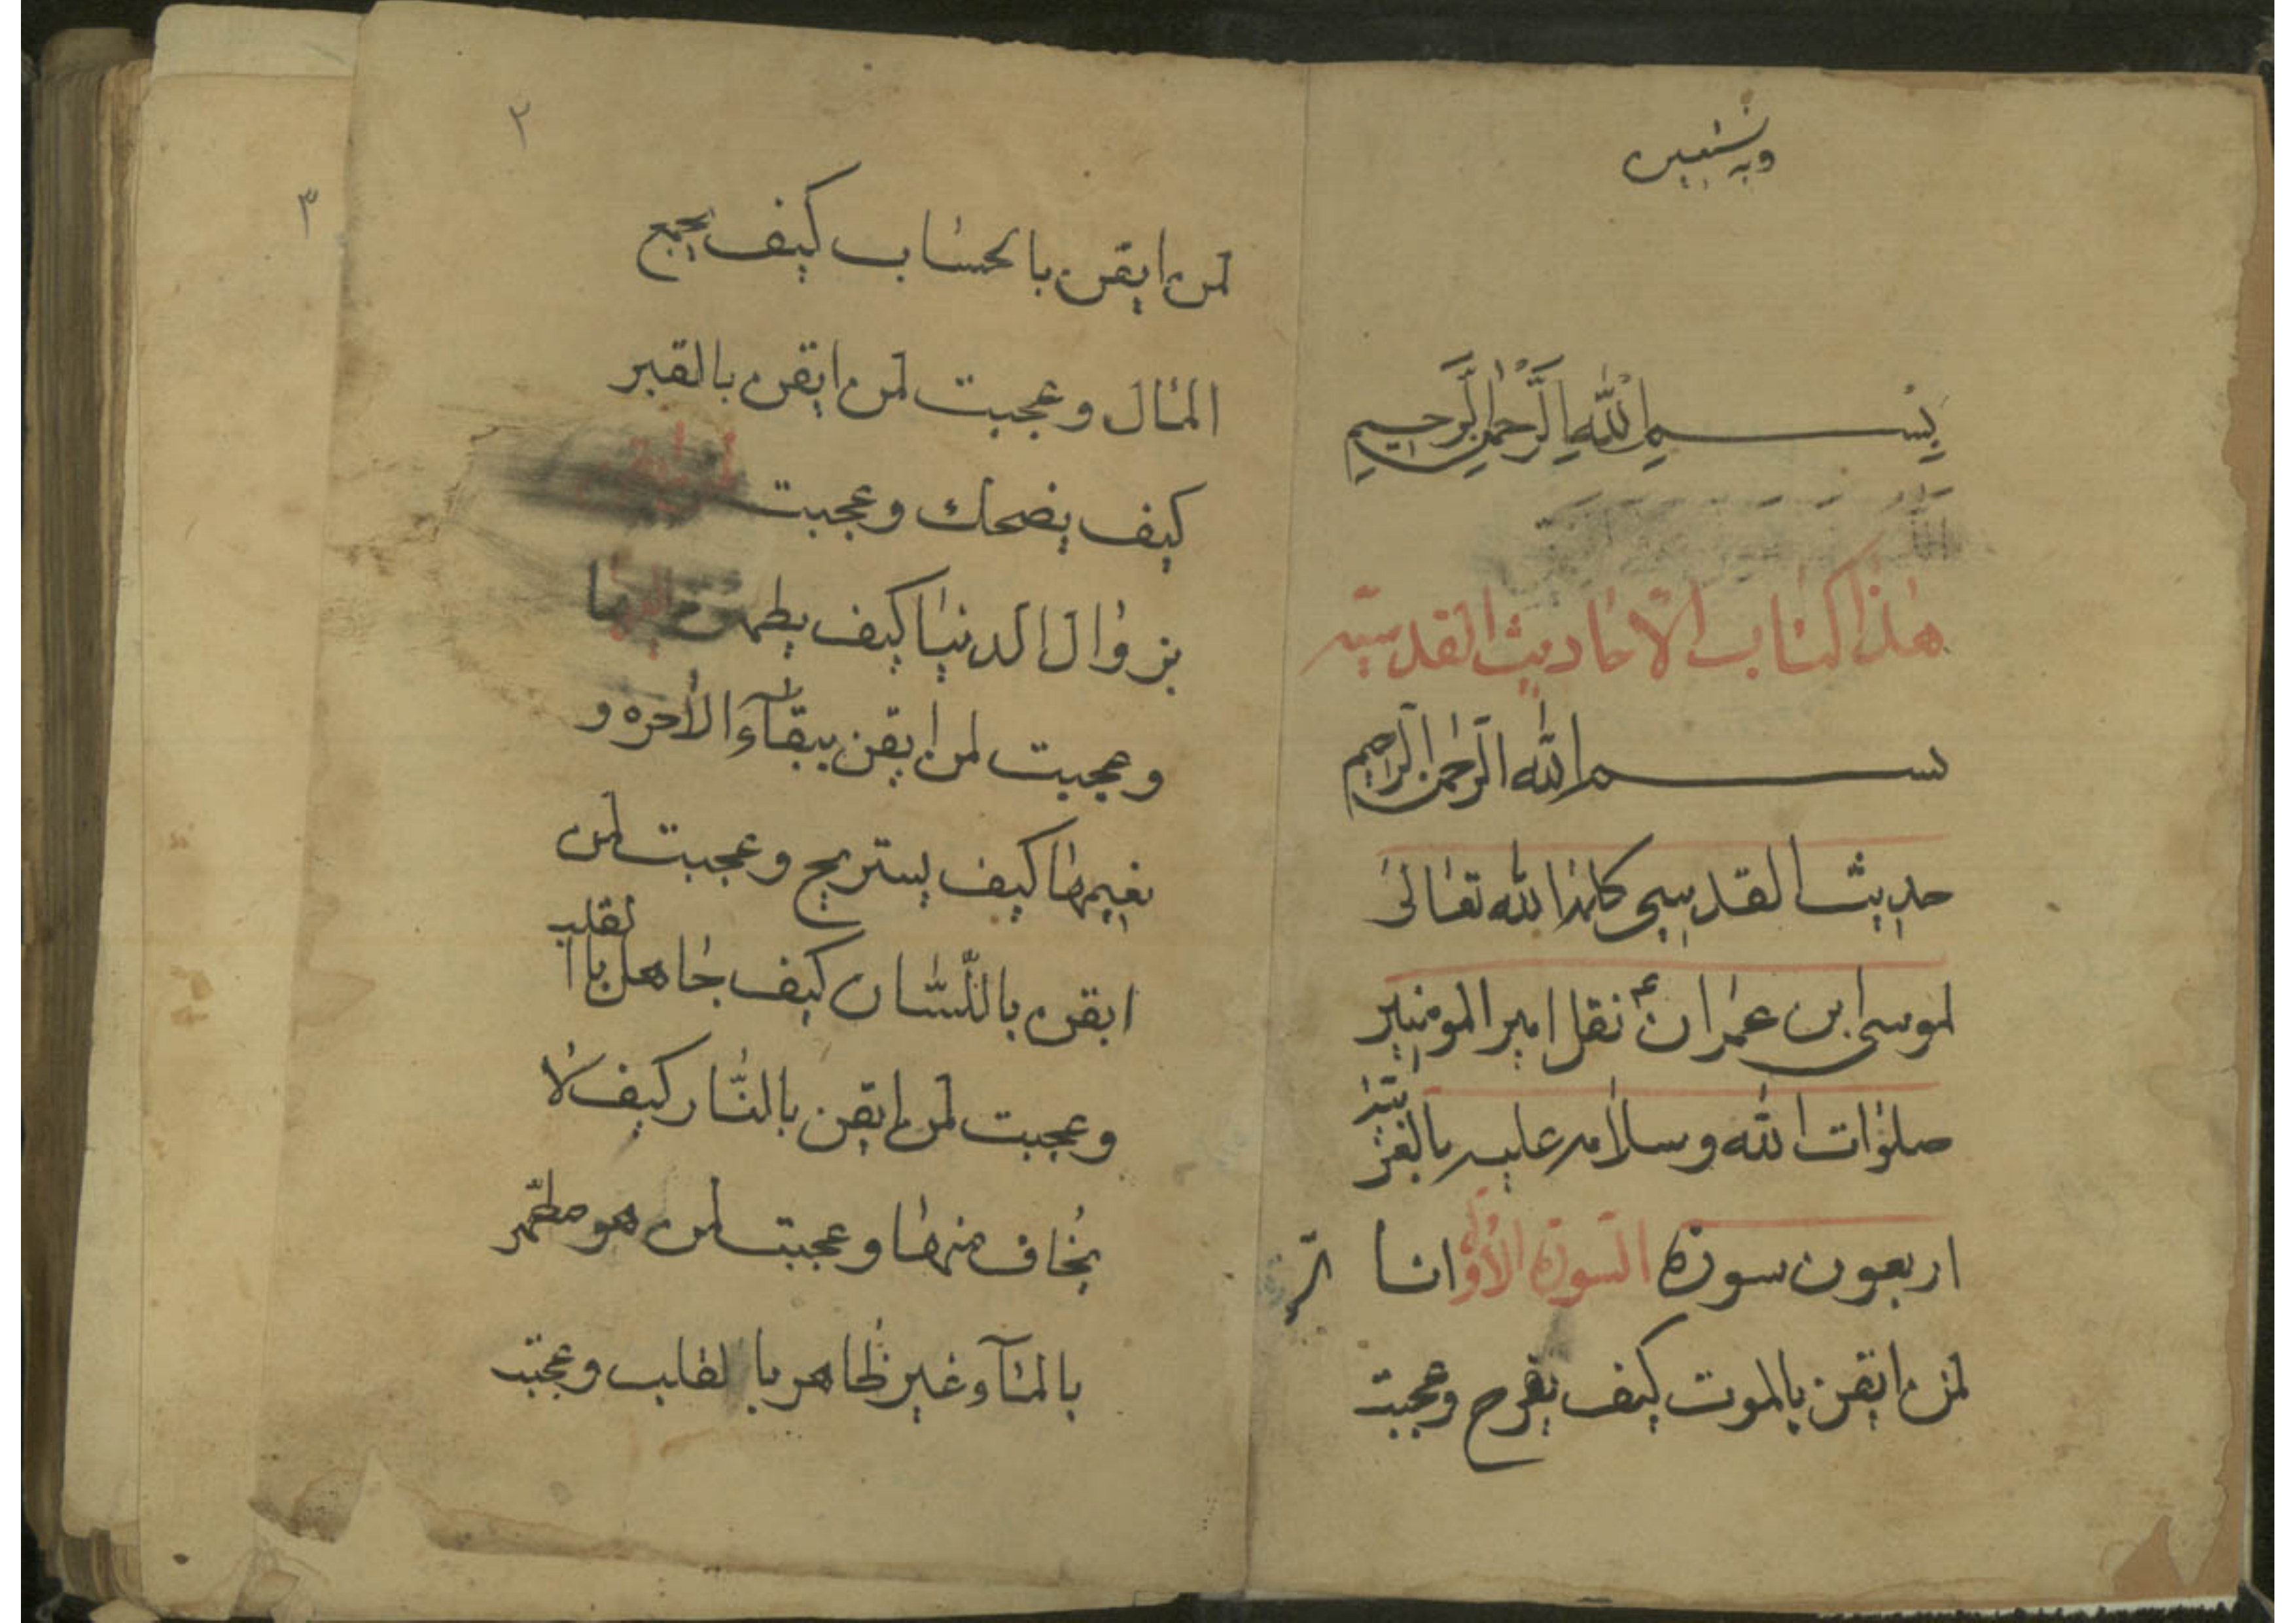 وبه نستعين
بِسْمِ اللّٰهِ الرَّحْمٰنِ الرَّحِيمِ
هذا كتاب الاحاديث القدسيّه
بسم الله الرحمن الرحيم
حديث القدسي كلمه الله تعالى
لموسى ابن عمران ع نقل امير المومنين
صلوات الله وسلامه عليه بالعز
اربعون سورة السورة الاولى انا
لمن ايقن بالموت كيف يفرح وعجبت
٢
لمن ايقن بالحساب كيف يجمع
المال وعجبت لمن ايقن بالقبر
كيف يضحك وعجبت لمن ايقن
بزوال الدنيا كيف يطمئن
وعجبت لمن ايقن ببقاء الاخره و
نعيمها كيف يستريح وعجبت لمن
ايقن باللسان كيف جاهل با القلب
وعجبت لمن ايقن بالنّار كيف لا
يخاف منها وعجبت لمن هو مطهّر
بالماء وغير طاهر با لقلب وعجبت
٣